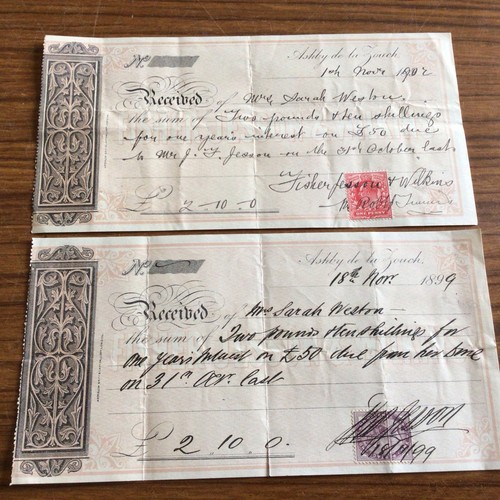 No
Ashby de la Zouch,
Novr 1902
Received of Mrs Sarah Weston
the sum of Two pounds & ten shillings
for one year's interest on £50 due
to Mr J. F. Jesson on the 31st October last
Fisher Jesson & Wilkins
£ 2-10-0
ONE PENNY
No
Ashby de la Zouch,
18th Novr. 1899
Received of Mrs Sarah Weston
the sum of Two pounds & ten shillings for
one years Interest on £50 due from her
on 31st Oct. last
£ 2 10 0.